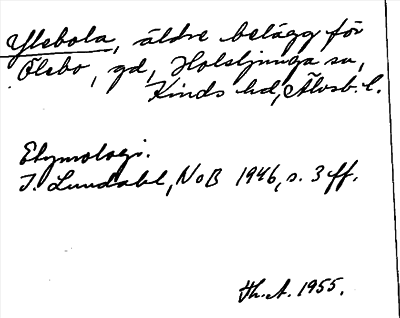 Ylebola, äldre belägg för
Ölebo, gd, Holsljunga sn,
Kinds hd, Älvsb. l.
Etymologi.
I. Lundahl, NoB 1946, s. 3 ff.
Th. A. 1955.